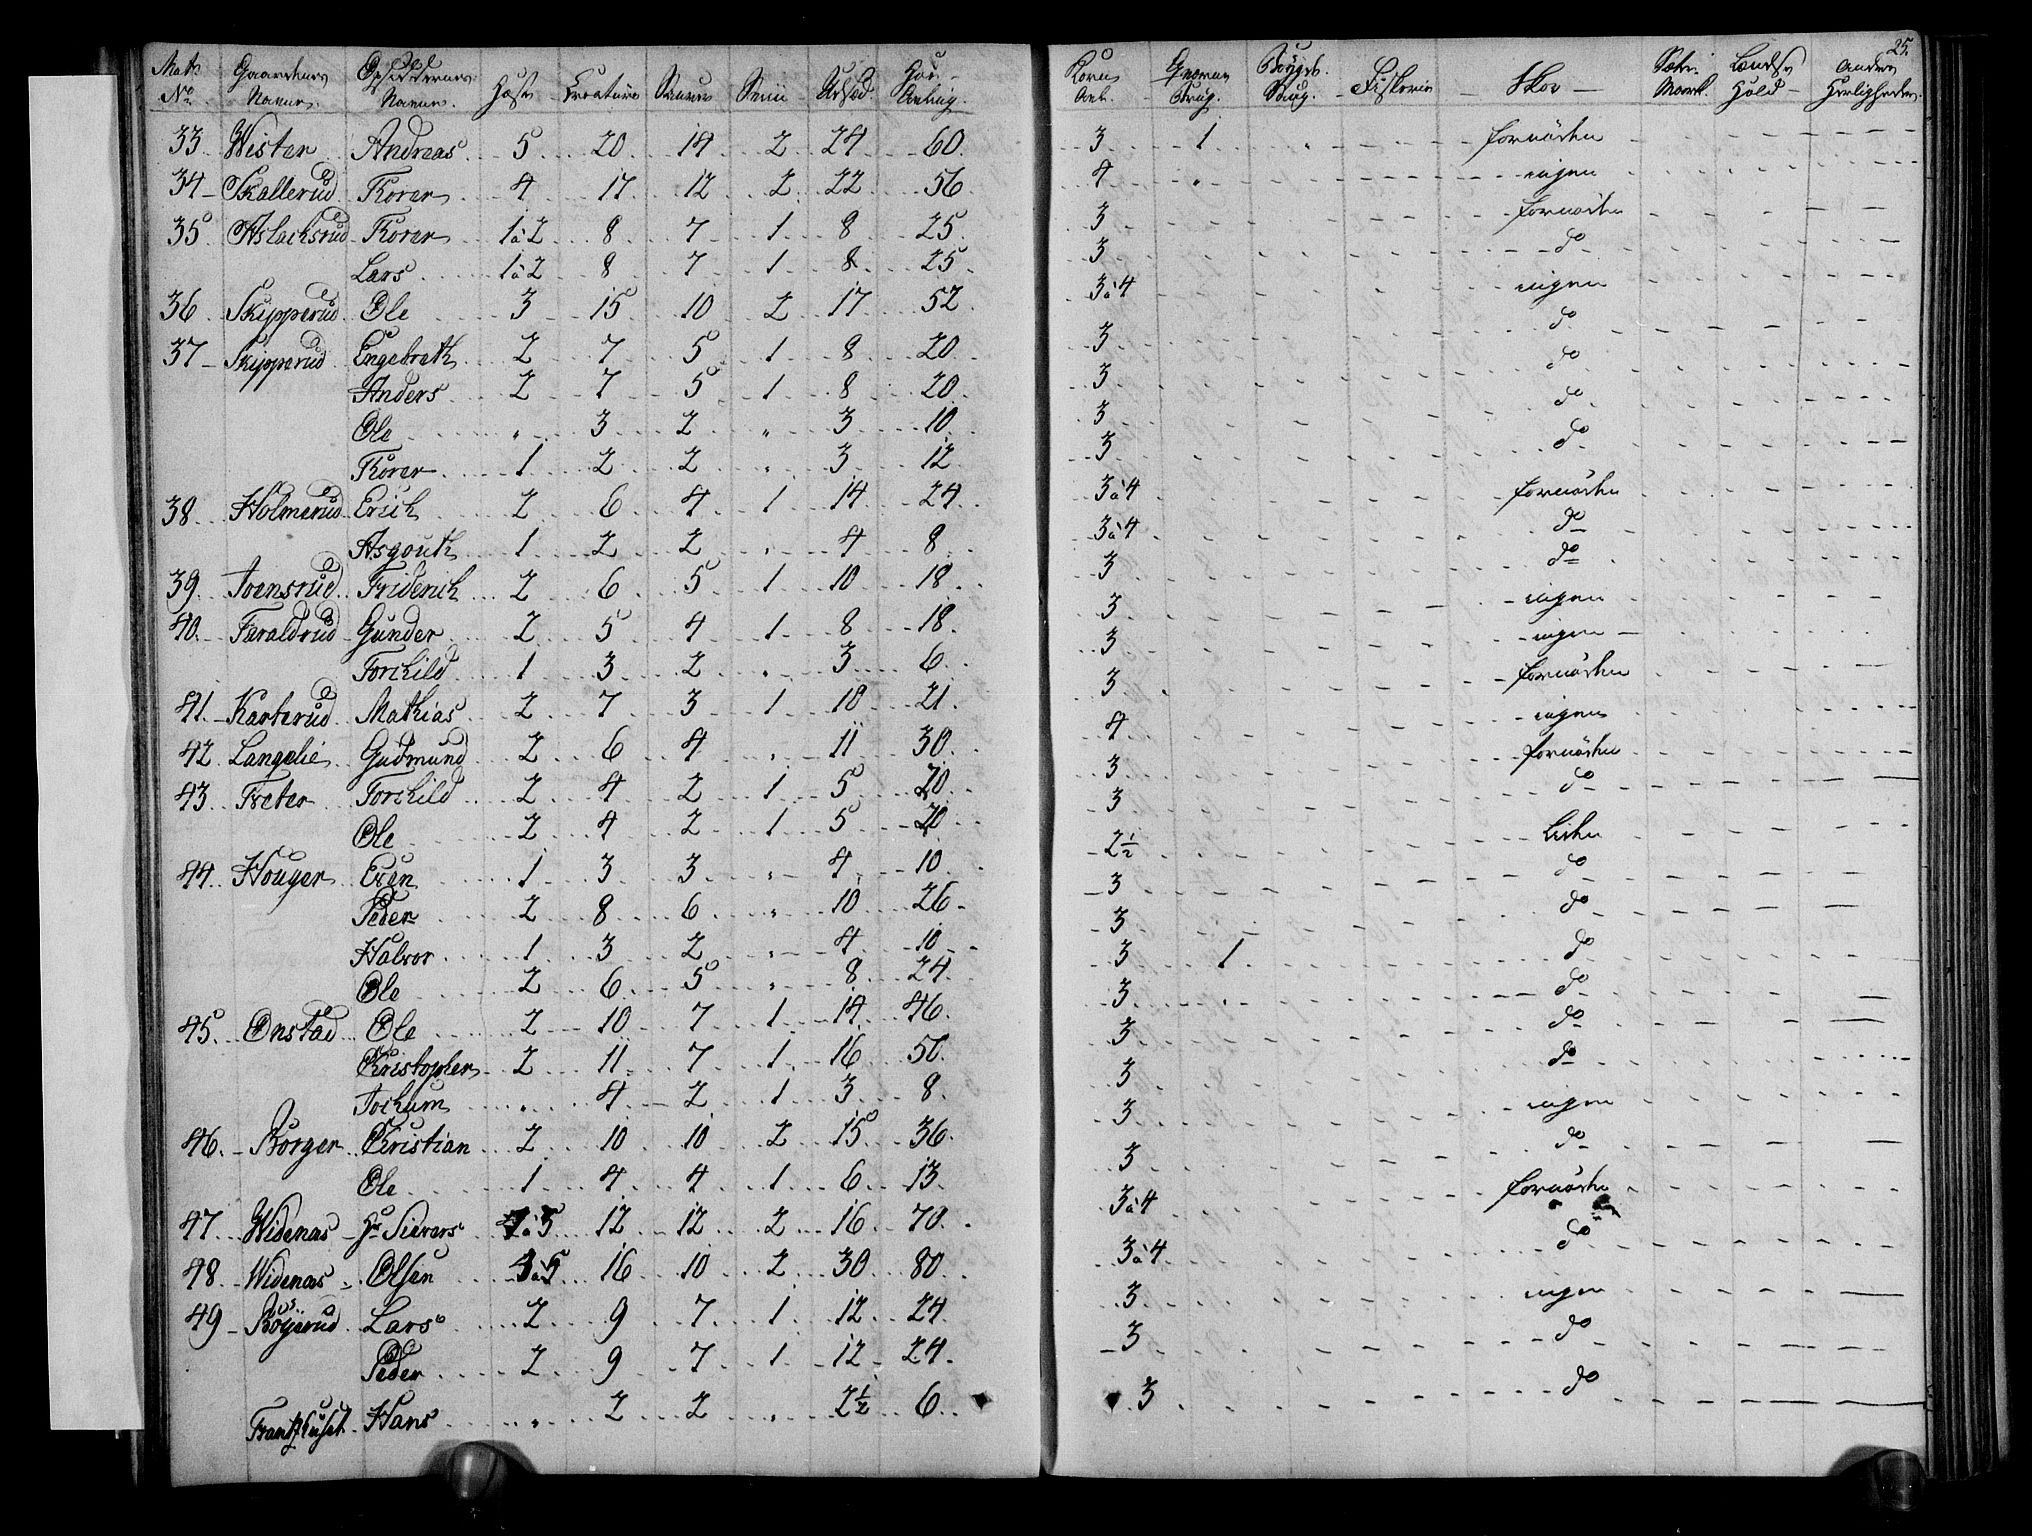 25.
Matr No | Gaardenes Navne | Opsiddernes Navne. | Heste | Creature | Sauer | Sviin | Udsæd. | Høe Avling. | Korn Avl. | Qværne Brug. | Bøigde Saug. | Fiskerie | Skov | Sæter Mark. | Lændse Hold | Andre Herligheder.
33. Wister. Andreas. 5. 20. 14. 2. 24. 60. 3. 1. fornöden
34 Skallerud. Torer. 4. 17. 12. 2. 22. 56. 4. " ingen
35. Aslachsrud Torer. 1 à 2. 8. 7. 1. 8. 25. 3. fornöden
Lars. 1 à 2. 8. 7. 1. 8. 25. 3. do
36. Skipperud. Ole. 3. 15. 10. 2. 17. 52. 3 à 4. ingen
37 Skipperud. Engebreth. 2. 7. 5. 1. 8. 20. 3. do
Anders. 2. 7. 5. 1. 8. 20. 3. do
Ole. " 3. 2. " 3. 10. 3. do
Torer. 1. 2. 2. " 3. 12. 3. do
38. Holmerud. Erich. 2. 6. 4. 1. 14. 24. 3 à 4. fornöden
Asgouth. 1. 2. 2. " 4. 8. 3 à 4. do
39. Joensrud. Friderich. 2. 6. 5. 1. 10. 18. 3. do
40. Taraldrud. Gunder. 2. 5. 4. 1. 8. 18. 3. ingen
Torchild. 1. 3. 2. " 3. 6. 3. ingen
41. Karterud. Mathias. 2. 7. 3. 1. 10. 21. 3. fornöden
42. Langelie. Gudmund. 2. 6. 4. " 11. 30. 4. ingen
43. Treter. Torchild. 2. 4. 2. 1. 5. 20. 3. fornöden
Ole. 2. 4. 2. 1. 5. 20. 3. do
44. Houger. Even. 1. 3. 3. " 4. 10. 2½. Liden
Peder. 2. 8. 6. " 10. 26. 3. do
Halvor. 1. 3. 2. " 4. 10. 3. do
Ole. 2. 6. 5. " 8. 24. 3. 1. do
45. Onstad. Ole. 2. 10. 7. 1. 14. 46. 3. do
Christopher. 2. 11. 7. 1. 16. 50. 3. do
Jochum. " 4. 2. 1. 3. 8. 3. do
46. Borger. Christian. 2. 10. 10. 2. 15. 36. 3. ingen
Ole. 1. 4. 4. 1. 6. 13. 3. do
47. Widenæs Hr Sievers. à 5. 12. 12. 2. 16. 70. 3 à 4. fornöden
48. Widenæs. Olsen. 16. 10. 2. 30. 80. 3 à 4. do
49. Lars. 2. 9. 7. 1. 12. 24. 3. ingen
Peder. 2. 9. 7. 1. 12. 24. 3. do
Frantzhuset. Hans. " 2. 2. " 2½. 6. 3. do